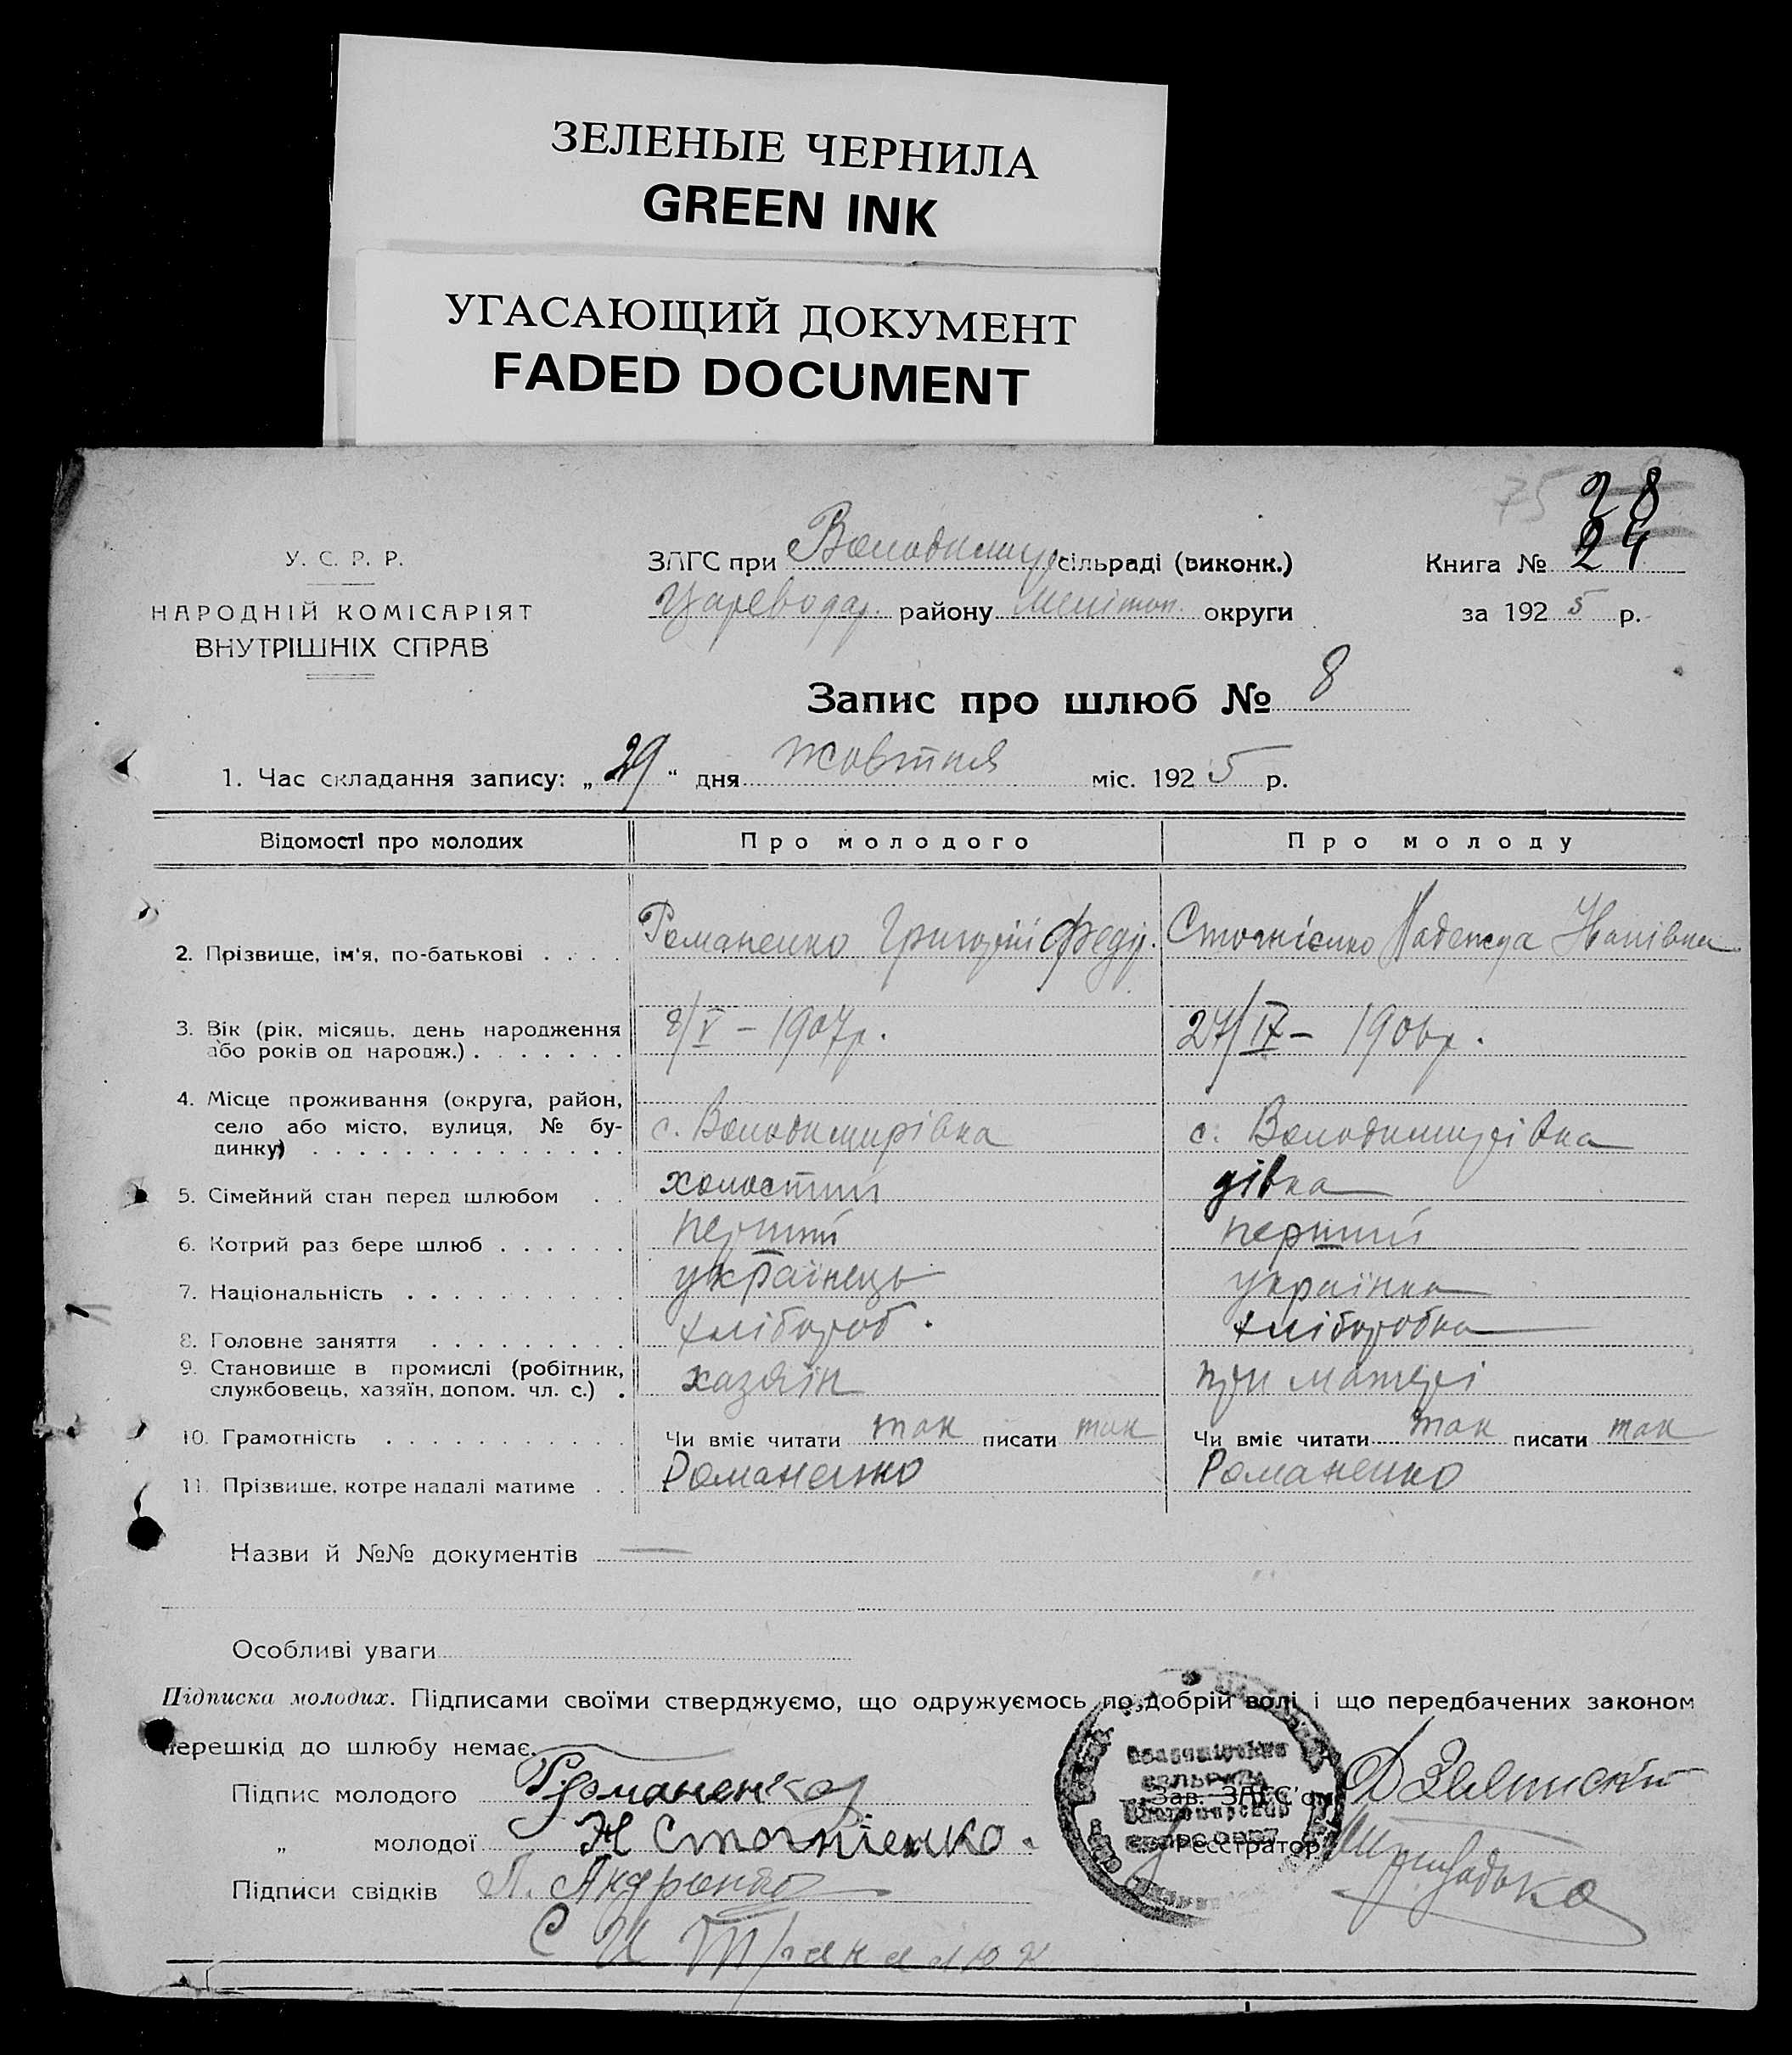 ЗЕЛЕНЫЕ ЧЕРНИЛА
GREEN INK
УГАСАЮЩИЙ ДОКУМЕНТ
FADED DOCUMENT
75
28
24
У. С. Р. Р.
НАРОДНІЙ КОМІСАРІЯТ
ВНУТРІШНІХ СПРАВ
ЗАГС при Володимир. сільраді (виконк.)
Цареводар. району Мелітоп. округи
Книга №
за 1925 р.
Запис про шлюб № 8
1. Час складання запису: „29“ дня жовтня міс. 1925 р.
Відомості про молодих Про молодого Про молоду
2. Прізвище, ім'я, по-батькові Романенко Григорій Федір. Стогнієнко Надежда Іванівна
3. Вік (рік, місяць, день народження
або років од народж.) 8/V – 1907р. 27/IX – 1906р.
4. Місце проживання (округа, район,
село або місто, вулиця, № бу-
динку) с. Володимирівка с. Володимирівка
5. Сімейний стан перед шлюбом холостий дівка
6. Котрий раз бере шлюб перший перший
7. Національність українець українка
8. Головне заняття хлібороб. хліборобка
9. Становище в промислі (робітник,
службовець, хазяїн, допом. чл. с.) хазяїн при матері
10. Грамотність Чи вміє читати так писати так Чи вміє читати так писати так
11. Прізвище, котре надалі матиме Романенко Романенко
Назви й №№ документів —
Особливі уваги
Підписка молодих. Підписами своїми стверджуємо, що одружуємось по добрій волі і що передбачених законом
перешкід до шлюбу немає.
Підпис молодого Романенко
„ молодої Н Стогнієнко.
Підписи свідків П.
С И
Зав. ЗАГС'ом
Реєстратор